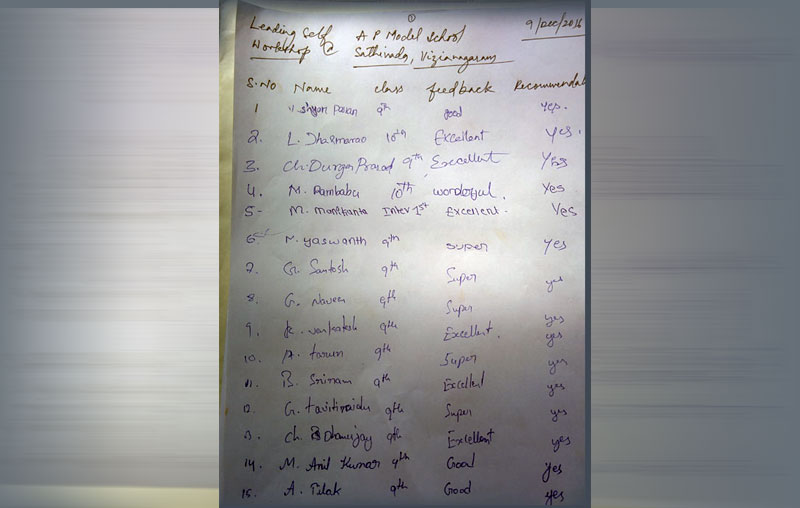 ①
Leading Self A P Model School 9/Dec/2016
Workshop @ Sathivada, Vizianagaram
S.No Name class feedback Recommendat
1 V. shyam Pavan 9th good Yes.
2. L. Dharmarao 10th Excellent Yes.
3. Ch. Durga Prasad 9th Excellent Yes
4. M. Rambabu 10th wonderful. Yes
5- M. manikanta Inter 1st Excellent. Yes
6. M. yaswanth 9th super Yes
7. G. Santosh 9th Super yes
8. G. Naveen 9th Super yes
9. K. venkatesh 9th Excellent. yes
10. A. tarun 9th Super yes
11. B. Sriram 9th Excellent yes
12. G. tavitinaidu 9th Super yes
13. Ch Dhanunjay 9th Excellent yes
14. M. Anil Kumar 9th Good yes
15. A. Tilak 9th Good yes